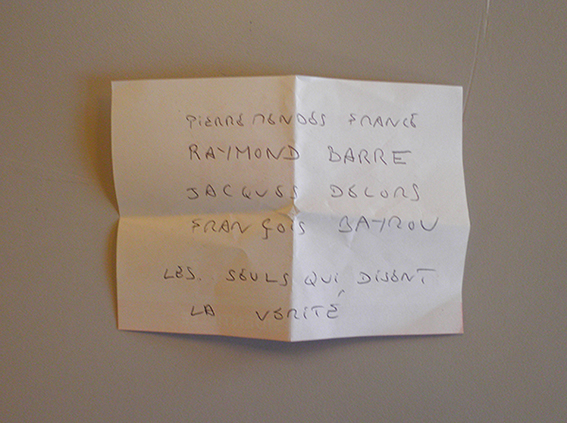 PIERRE MENDES FRANCE
RAYMOND BARRE
JACQUES DELORS
FRANÇOIS BAYROU
LES SEULS QUI DISENT
LA VERITÉ